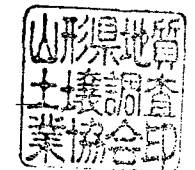 山形県地質
土壌調査
業協会印